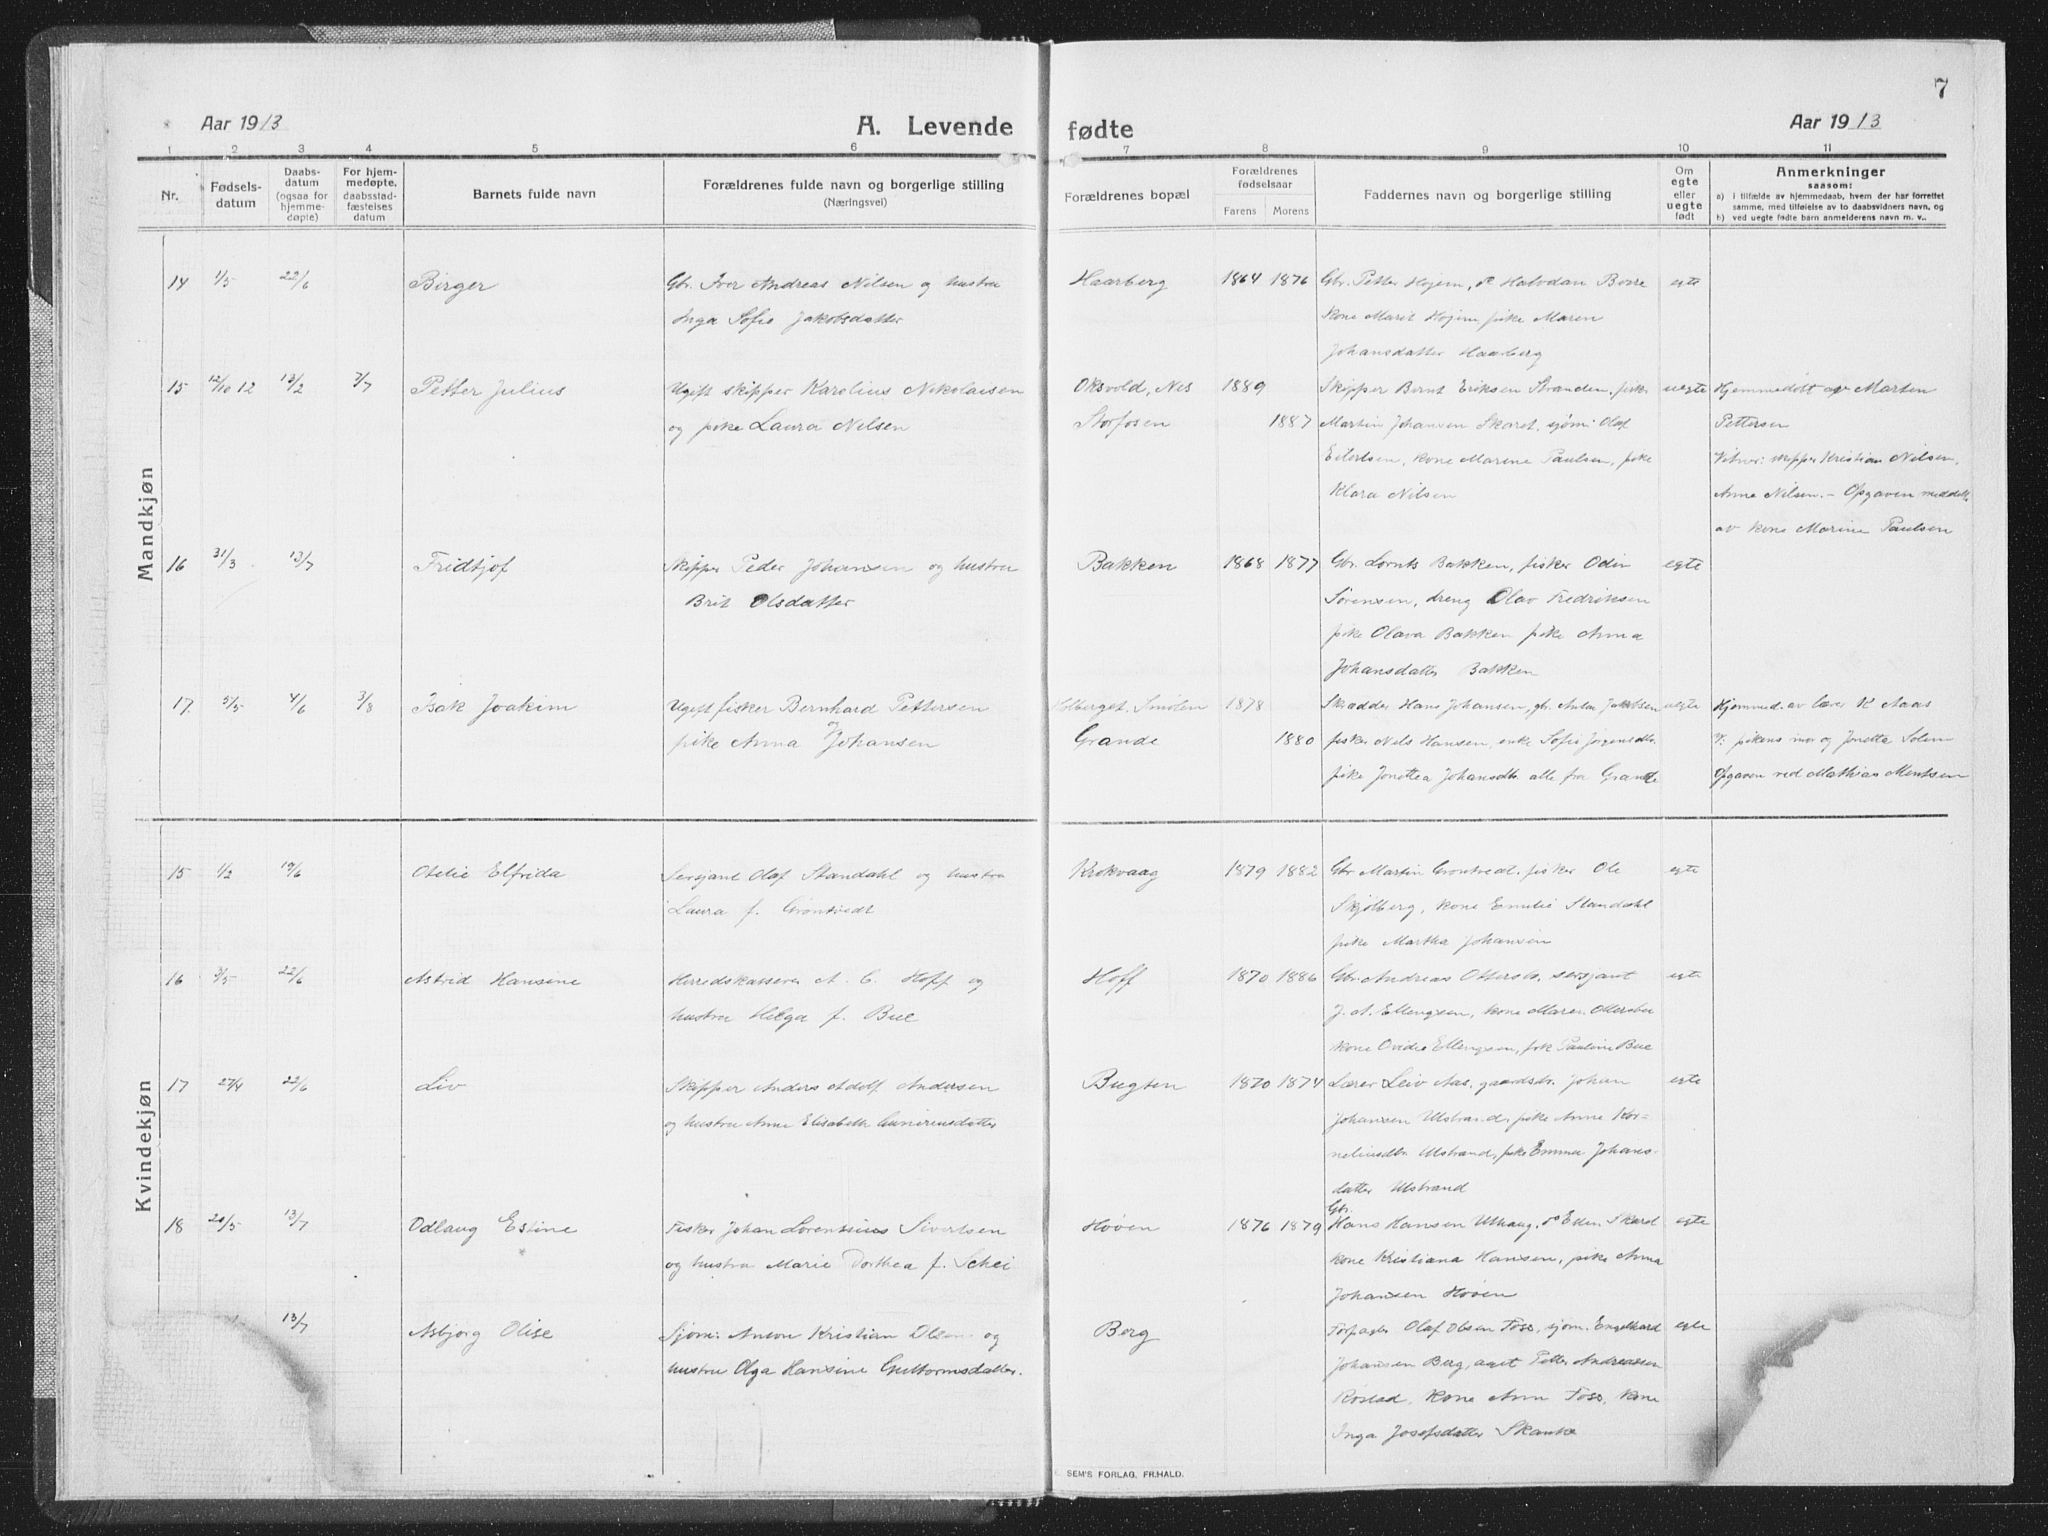 7
Aar 1913 A. Levende fødte Aar 1913
1 2 3 4 5 6 7 8 9 10 11
Nr.
Fødsels-
datum
Daabs-
datum
(ogsaa for
hjemme-
døpte)
For hjem-
medøpte,
daabsstad-
fæstelses
datum
Barnets fulde navn
Forældrenes fulde navn og borgerlige stilling
(Næringsvei)
Forældrenes bopæl
Forældrenes
fødselsaar
Farens Morens
Faddernes navn og borgerlige stilling
Om
egte
eller
uegte
født
Anmerkninger
saasom:
a) i tilfælde av hjemmedaab, hvem der har forrettet
samme, med tilføielse av to daabsvidners navn, og
b) ved uegte fødte barn anmelderens navn m. v..
Mandkjøn
14 1/5 22/6 Birger Gbr. Iver Andreas Nilsen og hustru Haarberg 1864 1876 Gbr. Petter Hojem, do Halvdan Borre egte
Inga Sofie Jakobsdatter kone Marit Hojem, pike Maren
Johansdatter Haarberg
15 12/10 12 13/2 7/7 Petter Julius Ugift skipper Karolius Nikolaisen Oksvold, Nes 1889 Skipper Bernt Eriksen Stranden, fisker uegte Hjemmedøbt av Marten
og pike Laura Nilsen Storfosen 1887 Martin Johansen Skaret, sjøm. Olaf Pettersen
Eilertsen, kone Marine Paulsen, pike skipper Kristian Nilsen,
Klara Nilsen Anna Nilsen. – Opgaven meddelt
av kone Marine Paulsen
16 31/3 13/7 Fridtjof Skipper Peder Johansen og hustru Bakken 1868 1877 Gbr. Lornts Bakken, fisker Odin egte
Brit Olsdatter Sørensen, dreng Olav Fredriksen
pike Olava Bakken pike Anna
Johansdatter Bakken
17. 5/5 4/6 3/8 Isak Joakim Ugift fisker Bernhard Pettersen Smølen 1878 Skrædder Hans Johansen, gbr. Anton Jakobsen uegte Hjemmed. av lærer K Aaas
og
pike Anna Johansen Grande 1880 fisker Nils Hansen, enke Sofie Jørgensdtr. V: pikens mor og Jonetta Solem
pike Jonettea Johansdtr. alle fra Grande Opgaven ved Mathias Mentsen
Kvindekjøn
15 1/2 19/6 Otelie Elfrida Sersjant Olaf Standahl og hustru Krokvaag 1879 1882 Gbr Martin Grøntvedt, fisker Ole egte
Laura f. Grøntvedt Skjølberg, kone Emilie Standahl
pike Martha Johansen
16 3/5 22/6 Astrid Hansine Herredskasserer A. C. Hoff og Hoff 1870 1886 Gbr. Andreas Ottersb. sersjant egte
hustru Helga f. Bue J. A. Ellengsen, kone Maren Ottersbo
kone Ovidie Ellengsen, pik Pauline Bue
17 27/4 22/6 Liv Skipper Anders Adolf Andersen Bugten 1870 1874 Lærer Leiv Aas, gaardsbr. Johan egte
og hustru Anne Elisabeth Guneriusdatter Johansen Ulstrand, pike Anne Kor-
neliusdtr. Ulstrand, pike Emma Johans-
datter Ulstrand
18 20/5 13/7 Odlaug Estine Fisker Johan Lorentsius Sivertsen Høven 1876 1879 Gbr. Hans Hansen Uthaug, do Skard egte
og hustru Marie Dorthea f. Schei kone Kristiana Hansen, pike Anna
Johansen Høven
13/7 Asbjørg Olise Sjøm: Anton Kristian Olsen og Berg Forpagter Olaf Olsen Foss, sjøm. Engelhard egte
hustru Olga Hansine Guttormsdatter. Johansen Berg, Petter Andreassen
Rostad, kone Ann Foss, kone
Inga Josefsdatter Skanke
SEM'S FORLAG, FR.HALD.